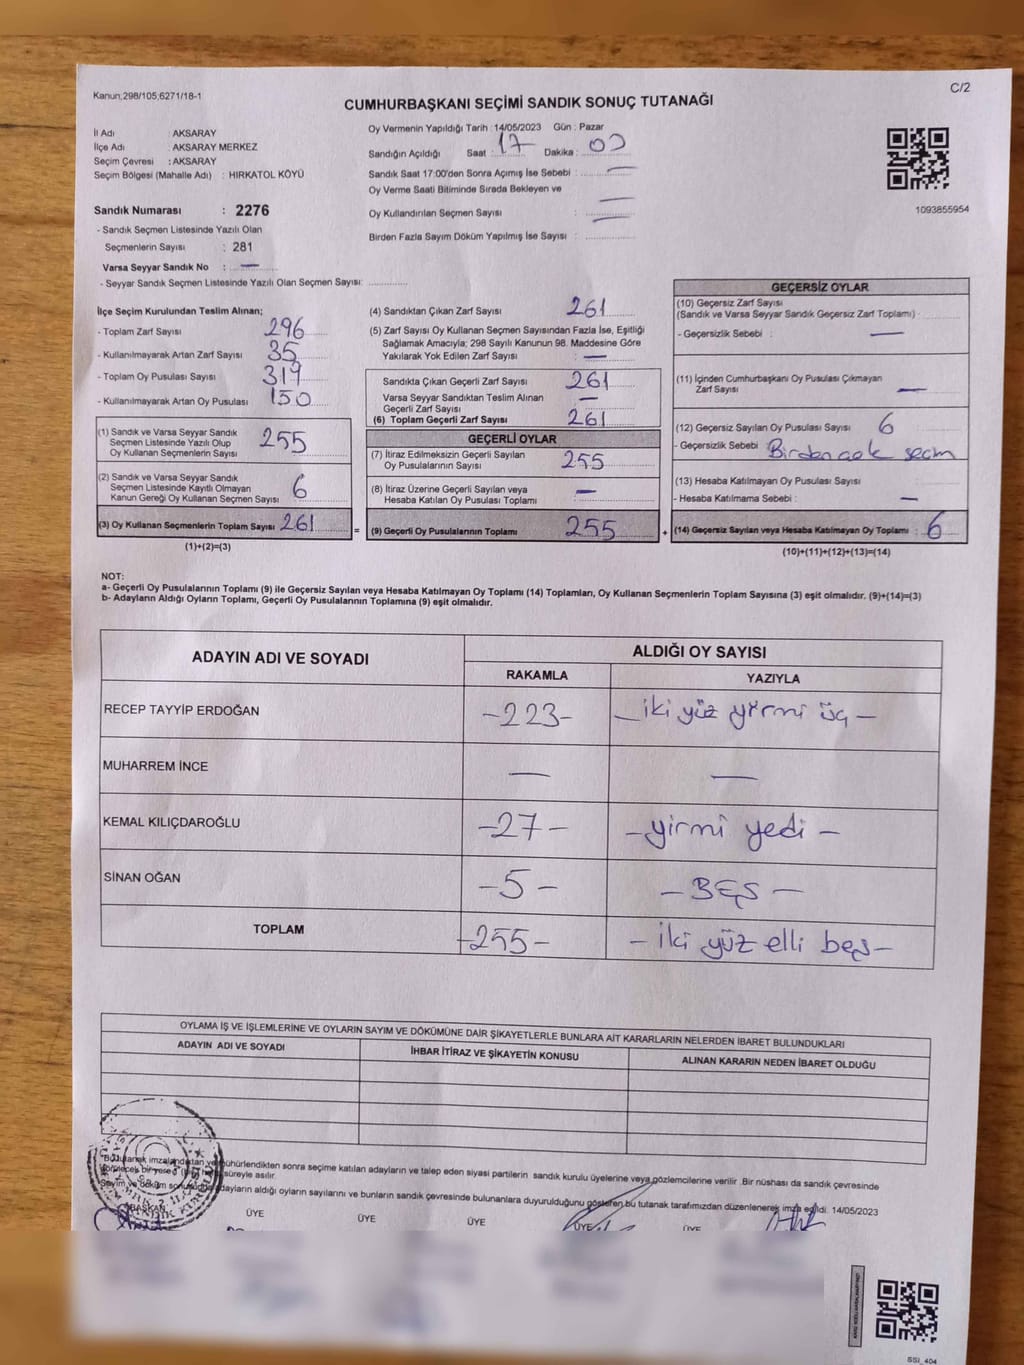 Kanun;298/105;6271/18-1
C/2
CUMHURBAŞKANI SEÇİMİ SANDIK SONUÇ TUTANAĞI
İl Adı : AKSARAY
İlçe Adı : AKSARAY MERKEZ
Seçim Çevresi : AKSARAY
Seçim Bölgesi (Mahalle Adı) : HIRKATOL KÖYÜ
Sandık Numarası : 2276
- Sandık Seçmen Listesinde Yazılı Olan
Seçmenlerin Sayısı : 281
Varsa Seyyar Sandık No : —
- Seyyar Sandık Seçmen Listesinde Yazılı Olan Seçmen Sayısı:
Oy Vermenin Yapıldığı Tarih :14/05/2023 Gün : Pazar
Sandığın Açıldığı Saat : 17 Dakika : 00
Sandık Saat 17:00'den Sonra Açımış İse Sebebi : —
Oy Verme Saati Bitiminde Sırada Bekleyen ve
Oy Kullandırılan Seçmen Sayısı : —
Birden Fazla Sayım Döküm Yapılmış İse Sayısı : —
1093855954
İlçe Seçim Kurulundan Teslim Alınan;
- Toplam Zarf Sayısı 296
- Kullanılmayarak Artan Zarf Sayısı 35
- Toplam Oy Pusulası Sayısı 319
- Kullanılmayarak Artan Oy Pusulası 150
(1) Sandık ve Varsa Seyyar Sandık
Seçmen Listesinde Yazılı Olup
Oy Kullanan Seçmenlerin Sayısı 255
(2) Sandık ve Varsa Seyyar Sandık
Seçmen Listesinde Kayıtlı Olmayan
Kanun Gereği Oy Kullanan Seçmen Sayısı 6
(3) Oy Kullanan Seçmenlerin Toplam Sayısı 261 =
(1)+(2)=(3)
(4) Sandıktan Çıkan Zarf Sayısı 261
(5) Zarf Sayısı Oy Kullanan Seçmen Sayısından Fazla İse, Eşitliği
Sağlamak Amacıyla; 298 Sayılı Kanunun 98. Maddesine Göre
Yakılarak Yok Edilen Zarf Sayısı : —
Sandıkta Çıkan Geçerli Zarf Sayısı 261
Varsa Seyyar Sandıktan Teslim Alınan
Geçerli Zarf Sayısı —
(6) Toplam Geçerli Zarf Sayısı 261
GEÇERLİ OYLAR
(7) İtiraz Edilmeksizin Geçerli Sayılan
Oy Pusulalarının Sayısı 255
(8) İtiraz Üzerine Geçerli Sayılan veya
Hesaba Katılan Oy Pusulası Toplamı —
(9) Geçerli Oy Pusulalarının Toplamı 255 +
GEÇERSİZ OYLAR
(10) Geçersiz Zarf Sayısı
(Sandık ve Varsa Seyyar Sandık Geçersiz Zarf Toplamı) :
- Geçersizlik Sebebi : —
(11) İçinden Cumhurbaşkanı Oy Pusulası Çıkmayan
Zarf Sayısı —
(12) Geçersiz Sayılan Oy Pusulası Sayısı 6
- Geçersizlik Sebebi : Birden çok seçim
(13) Hesaba Katılmayan Oy Pusulası Sayısı :
- Hesaba Katılmama Sebebi : —
(14) Geçersiz Sayılan veya Hesaba Katılmayan Oy Toplamı : 6
(10)+(11)+(12)+(13)=(14)
NOT:
a- Geçerli Oy Pusulalarının Toplamı (9) ile Geçersiz Sayılan veya Hesaba Katılmayan Oy Toplamı (14) Toplamları, Oy Kullanan Seçmenlerin Toplam Sayısına (3) eşit olmalıdır. (9)+(14)=(3)
b- Adayların Aldığı Oyların Toplamı, Geçerli Oy Pusulalarının Toplamına (9) eşit olmalıdır.
ADAYIN ADI VE SOYADI ALDIĞI OY SAYISI
RAKAMLA YAZIYLA
RECEP TAYYİP ERDOĞAN -223- — iki yüz yirmi üç —
MUHARREM İNCE — —
KEMAL KILIÇDAROĞLU -27- - yirmi yedi -
SİNAN OĞAN -5- - BEŞ —
TOPLAM -255- - iki yüz elli beş -
OYLAMA İŞ VE İŞLEMLERİNE VE OYLARIN SAYIM VE DÖKÜMÜNE DAİR ŞİKAYETLERLE BUNLARA AİT KARARLARIN NELERDEN İBARET BULUNDUKLARI
ADAYIN ADI VE SOYADI İHBAR İTİRAZ VE ŞİKAYETİN KONUSU ALINAN KARARIN NEDEN İBARET OLDUĞU
mühürlendikten sonra seçime katılan adayların ve talep eden siyasi partilerin sandık kurulu üyelerine veya gözlemcilerine verilir .Bir nüshası da sandık çevresinde
süreyle asılır.
adayların aldığı oyların sayılarını ve bunların sandık çevresinde bulunanlara duyurulduğunu gösteren bu tutanak tarafımızdan düzenlenerek imza edildi. 14/05/2023
BAŞKAN ÜYE ÜYE ÜYE ÜYE ÜYE
SSİ_404